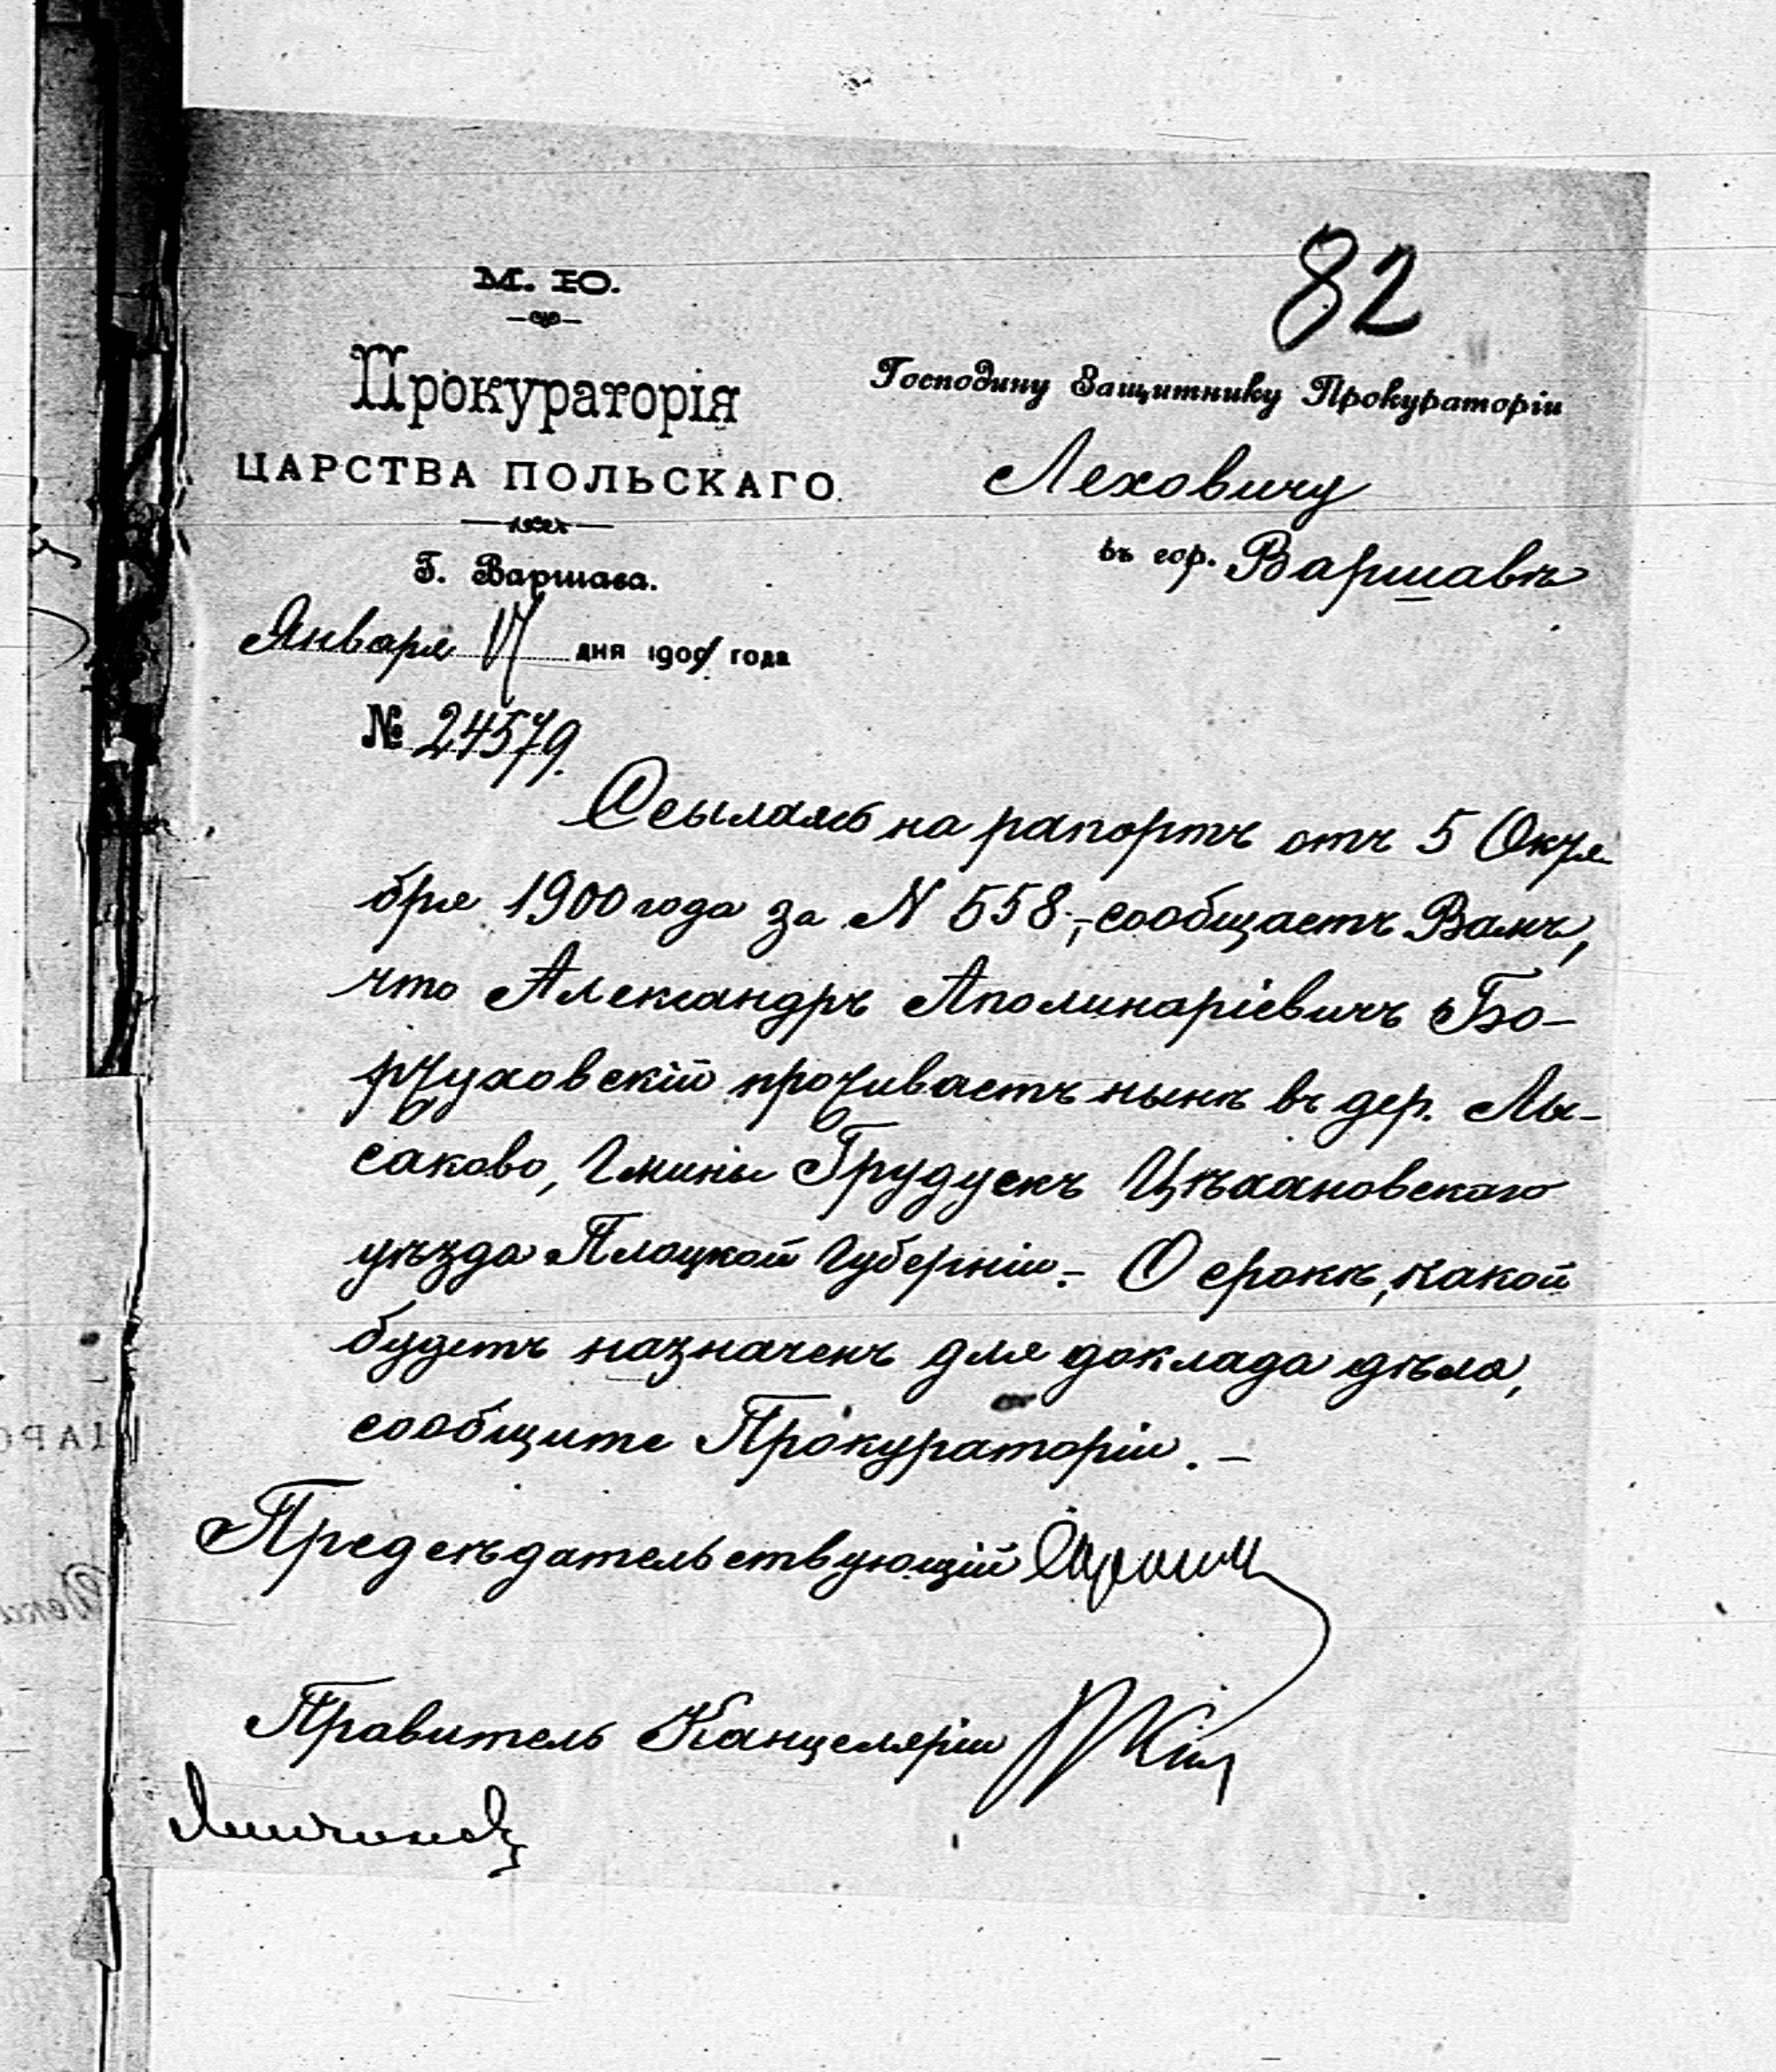 82
М. Ю.
Прокураторія
ЦАРСТВА ПОЛЬСКАГО.
Г. Варшава.
Января 17 дня 1901 года
№ 24579.
Господину Защитнику Прокураторіи
Леховичу
въ гор. Варшавѣ
Ссылаясь на рапортъ отъ 5 Октя-
бря 1900 года за N 558,- сообщаетъ Вамъ,
что Александръ Аполинаріевичъ Бо-
ржуховскій проживаетъ нынѣ въ дер. Лы-
саково, Гмины Грудускъ Цѣхановскаго
уѣзда Плоцкой Губерніи.- О срокѣ, какой
будетъ назначенъ для доклада дѣла,
сообщите Прокураторіи. -
Предсѣдательствующій
Правитель Канцеляріи